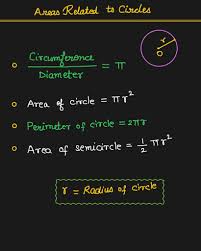 Areas Related to Circles
r
Circumference / Diameter = π
Area of circle = πr²
Perimeter of circle = 2πr
Area of semicircle = 1/2 πr²
r = Radius of circle